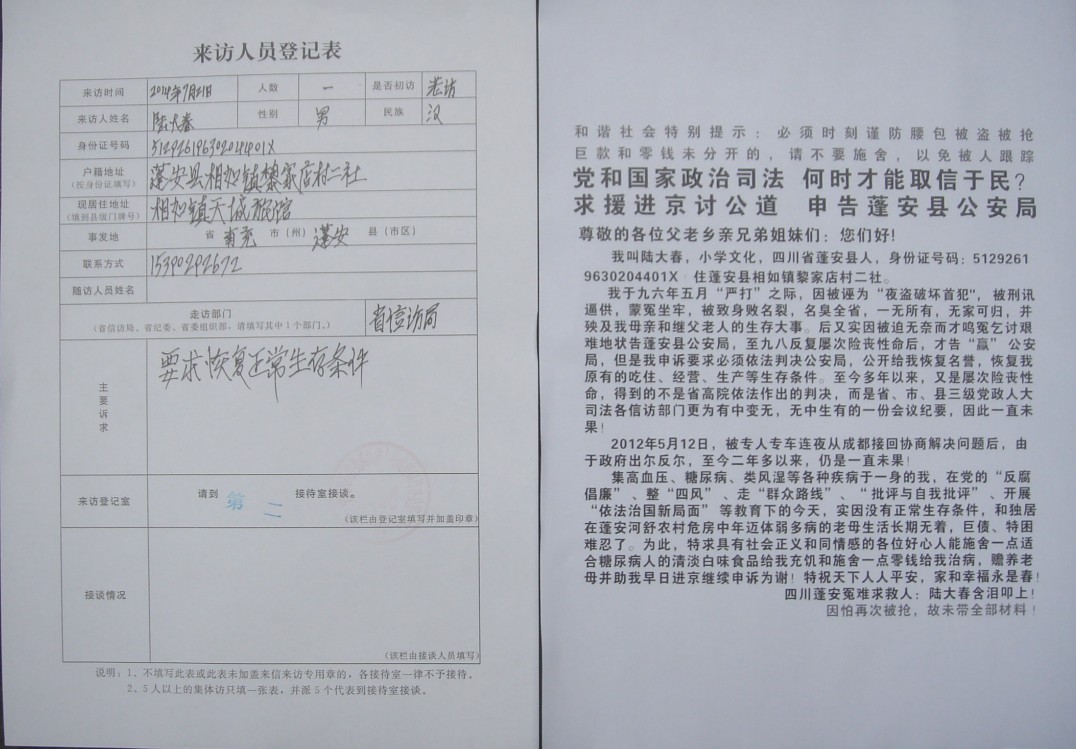 来访人员登记表
来访时间 2014年7月21日 人数 一 是否初访 老访
来访人姓名 陆大春 性别 男 民族 汉
身份证号码 51292619630204401X
户籍地址 蓬安县相如镇黎家店村二社
(按身份证填写)
现居住地址 相如镇天城旅馆
(填到县版门牌号)
事发地 省 南充 市(州) 蓬安 县(市区)
联系方式 15390292672
随访人员姓名
走访部门 省信访局
(省信访局、省纪委、省委组织部,请填写其中1个部门。)
主要诉求 要求恢复正常生存条件
来访登记室 请到 第二 接待室接谈。
(该栏由登记室填写并加盖印章)
接谈情况
(该栏由接谈人员填写)
说明:1、不填写此表或此表未加盖来信来访专用章的,各接待室一律不予接待。
2、5人以上的集体访只填一张表,并派5个代表到接待室接谈。
和谐社会特别提示:必须时刻谨防腰包被盗被抢
巨款和零钱未分开的,请不要施舍,以免被人跟踪
党和国家政治司法 何时才能取信于民?
求援进京讨公道 申告蓬安县公安局
尊敬的各位父老乡亲兄弟姐妹们:您们好!
我叫陆大春,小学文化,四川省蓬安县人,身份证号码:5129261
9630204401X 住蓬安县相如镇黎家店村二社。
我于九六年五月“严打”之际,因被诬为“夜盗破坏首犯”,被刑讯
逼供,蒙冤坐牢,被致身败名裂,名臭全省,一无所有,无家可归,并
殃及我母亲和继父老人的生存大事。后又实因被迫无奈而才鸣冤乞讨艰
难地状告蓬安县公安局,至九八反复屡次险丧性命后,才告“赢”公安
局,但是我申诉要求必须依法判决公安局,公开给我恢复名誉,恢复我
原有的吃住、经营、生产等生存条件。至今多年以来,又是屡次险丧性
命,得到的不是省高院依法作出的判决,而是省、市、县三级党政人大
司法各信访部门更为有中变无,无中生有的一份会议纪要,因此一直未
果!
2012年5月12日,被专人专车连夜从成都接回协商解决问题后,由
于政府出尔反尔,至今二年多以来,仍是一直未果!
集高血压、糖尿病、类风湿等各种疾病于一身的我,在党的“反腐
倡廉”、整“四风”、走“群众路线”、“批评与自我批评”、开展
“依法治国新局面”等教育下的今天,实因没有正常生存条件,和独居
在蓬安河舒农村危房中年迈体弱多病的老母生活长期无着,巨债、特困
难忍了。为此,特求具有社会正义和同情感的各位好心人能施舍一点适
合糖尿病人的清淡白味食品给我充饥和施舍一点零钱给我治病,赡养老
母并助我早日进京继续申诉为谢!特祝天下人人平安,家和幸福永是春!
四川蓬安冤难求救人:陆大春含泪叩上!
因怕再次被抢,故未带全部材料!